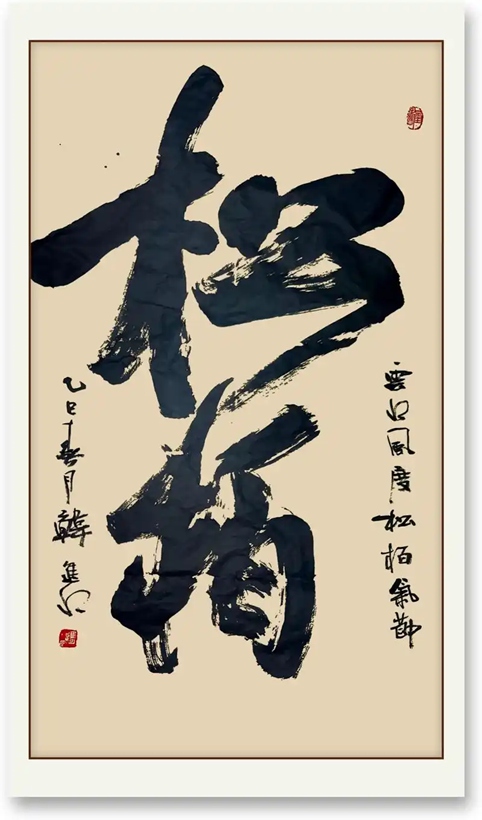 松柏
雲水風度松柏氣節
乙巳春月韓